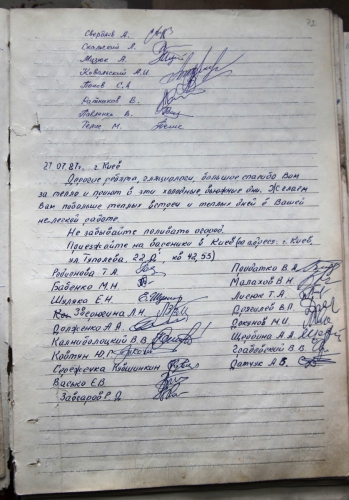 Свербиев А.
Скальский Л.
Мизюк А.
Ковальский А.И.
Панов С.А
Ратников В.
Павленко В.
Телис М.
27.07.87г. г. Киев
Дорогие ребята, гляциологи, большое спасибо Вам
за тепло и приют в эти холодные, вьюжные дни. Желаем
Вам побольше теплых встреч и теплых дней в Вашей
нелегкой работе.
Не забывайте поливать огород.
Приезжайте на вареники в Киев (по адресу: г. Киев,
ул. Туполева, 22, кв 42, 53)
Родионова Т.А. Приватко В.А.
Бабенко М.Н. Малахов В.Н.
Шуляка Е.Н. Лисюк Т.А.
Звонкина Л.Н. В.П.
Долженко А.А. Докунов М.И.
Калниболоцкий В.В. Щербина А.А.
Ковтун Ю.Г. Градовский В.В.
Сыроежска Кувшинкин Дотчук А.В.
Васько Е.В.
Завгаров Р.